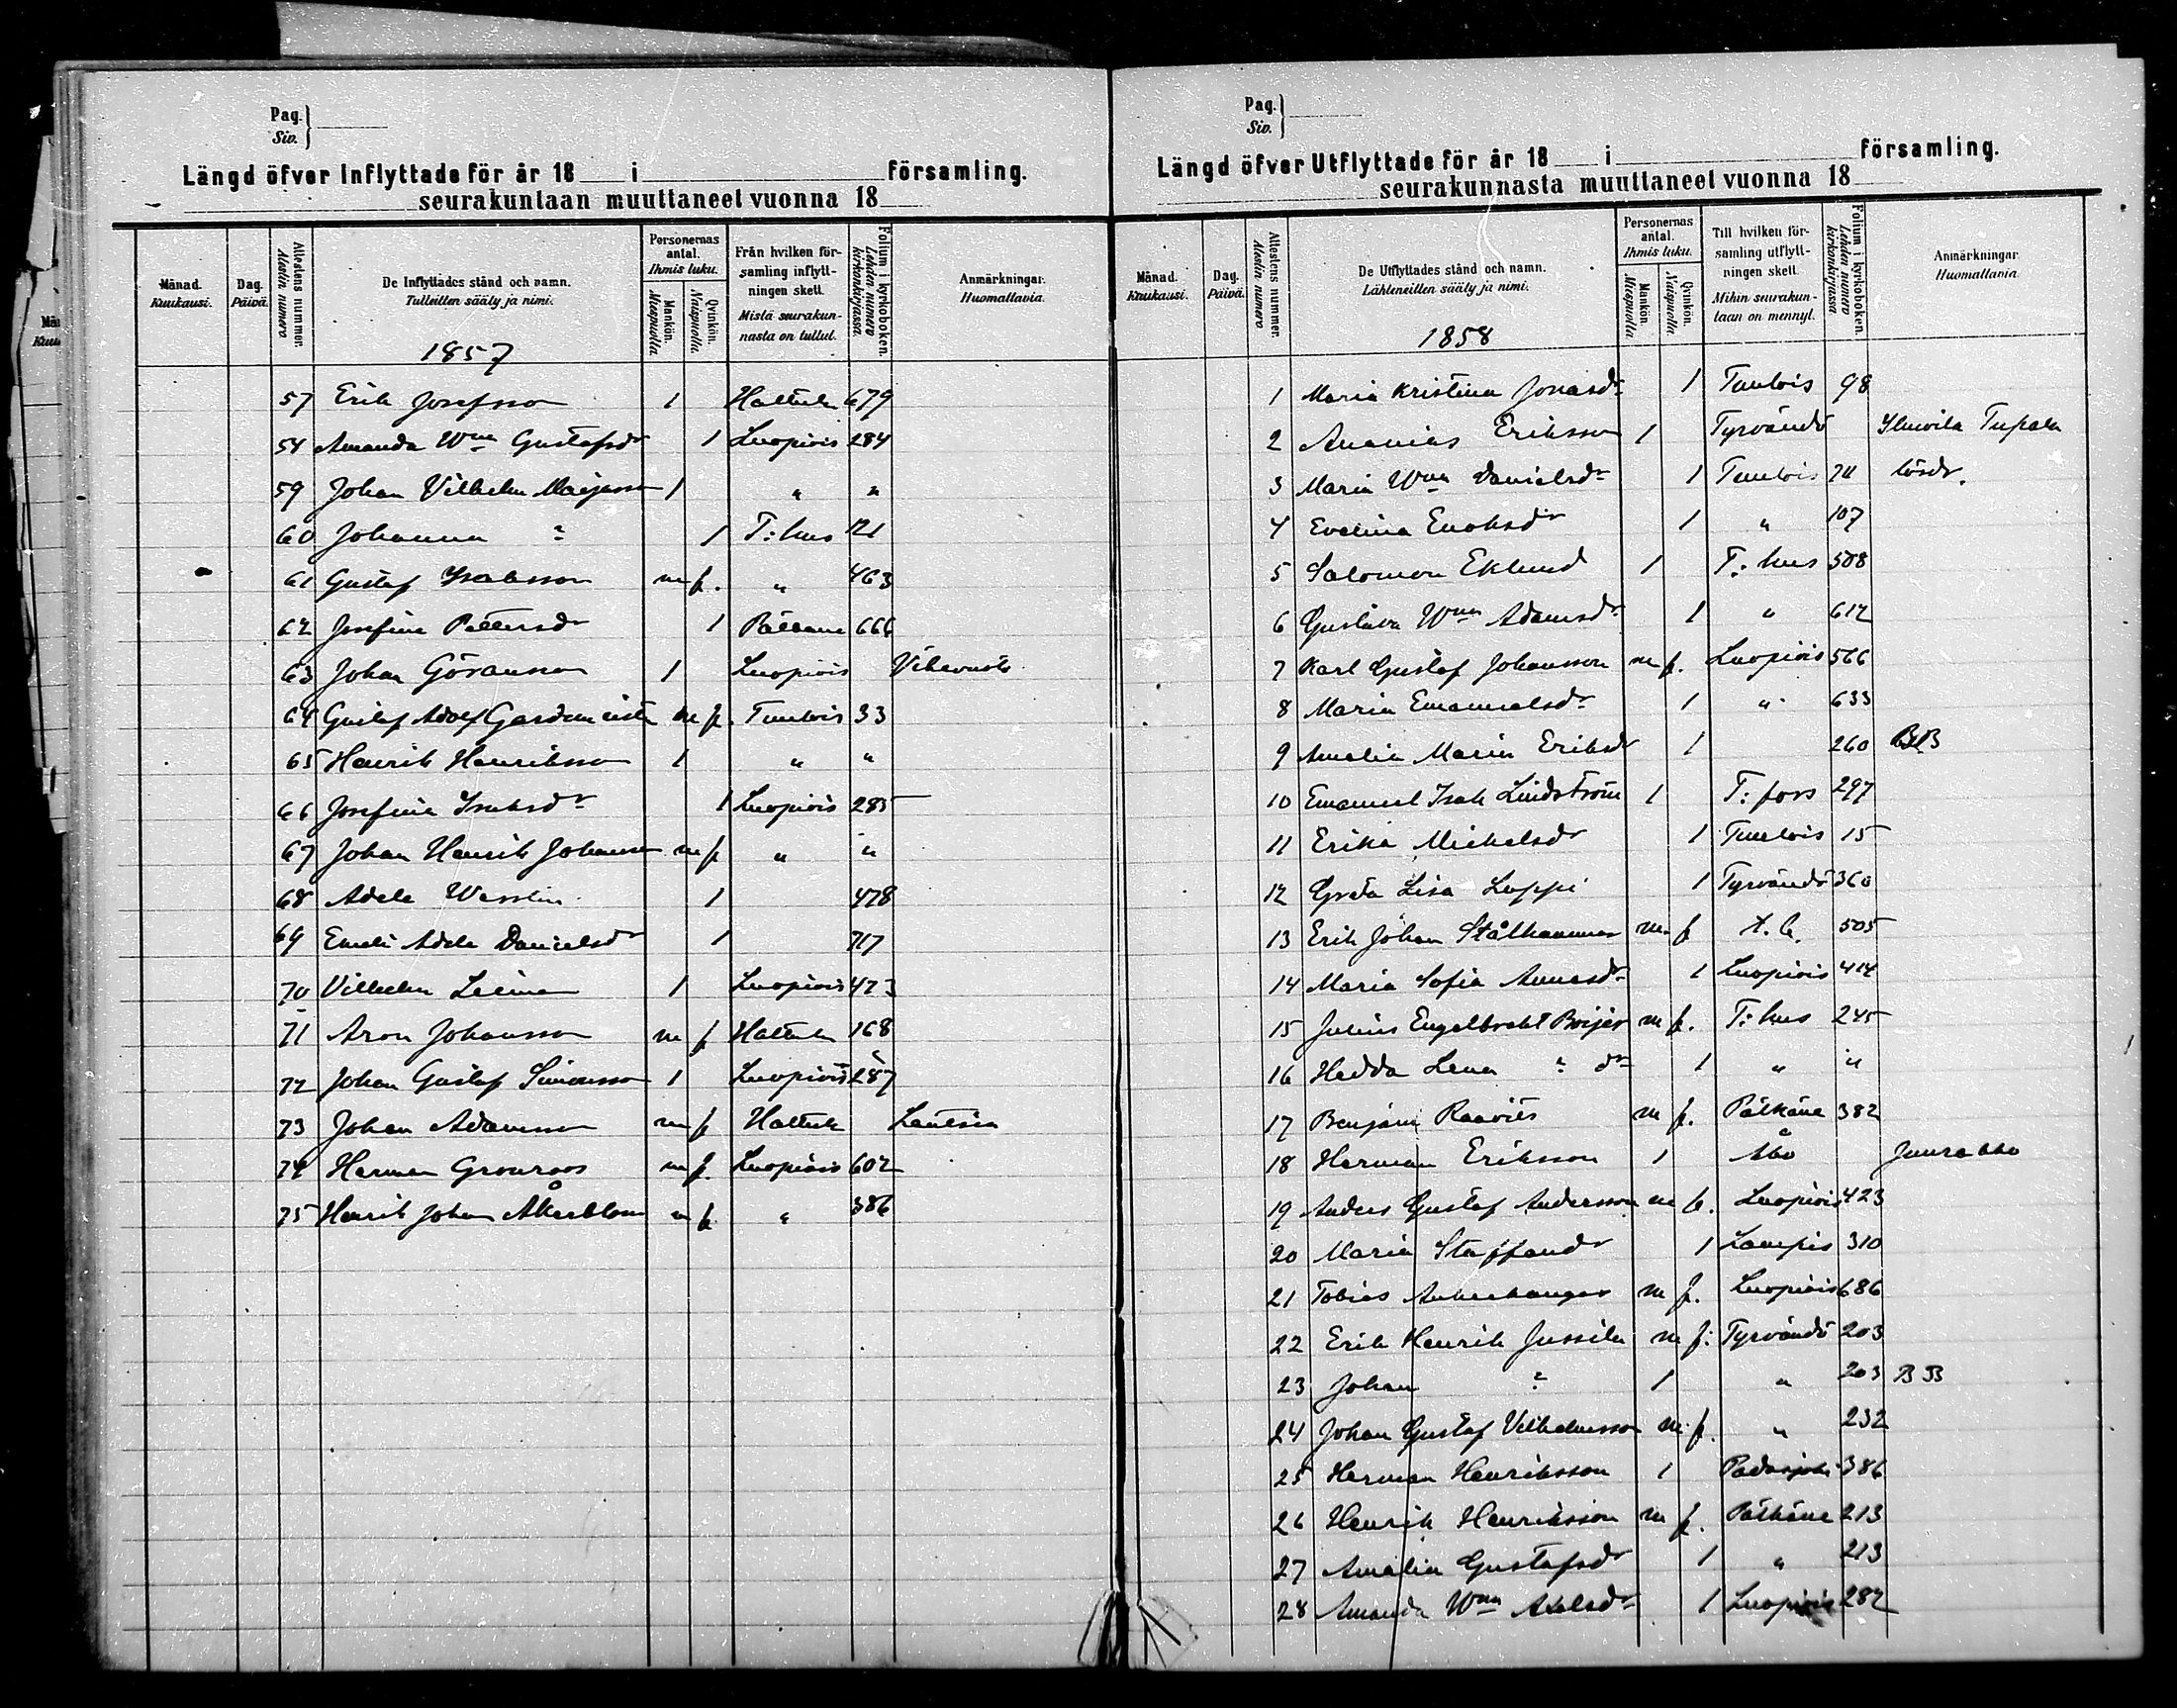 Pag.
Siv.
Längd öfver Inflyttade för år 18 i församling.
seurakuntaan muuttaneet vuonna 18
Månad. Kuukausi.
Dag. Päivä.
Attestens nummer. Atestin numero
De Inflyttades stånd och namn.
Tulleitten sääty ja nimi.
1857
Personernas antal. Ihmis luku.
Mankön. Miespuolia
Qvinkön. Naispuolia.
Från hvilken församling inflyttningen skett.
Mistä seurakunnasta on tullut.
Folium i kyrkoboken. Lehden numero kirkonkirjassa
Anmärkningar. Huomattavia.
57 Erik Josefsson 1 Hattula 679
58 Amanda Wma Gustafsdr 1 Luopiois 284
59 Johan Vilhelm Maijasson 1 " "
60 Johanna " 1 T:hus 121
61 Gustaf Isaksson m f. " 463
62 Josefina Pettersdr 1 Pälkäne 666
63 Johan Göransson 1 Luopiois
64 Gustaf Adolf m f. Tuulois 33
65 Henrik Henriksson 1 " "
66 Josefina Isaksdr 1 Luopiois 285
67 Johan Henrik Johansson m f " "
68 Adele 1 478
69 Emeli Adele Danielsdr 1 717
70 Vilhelm 1 Luopiois 473
71 Aron Johansson m f Hattula 168
72 Johan Gustaf Simonsson 1 Luopiois 287
73 Johan Adamsson m f Hattula Lautsia
74 Herman Grönroos m f. Luopiois 602
75 Henrik Johan Åkerblom m f " 386
Pag.
Siv.
Längd öfver Utflyttade för år 18 i församling.
seurakunnasta muuttaneet vuonna 18
Månad. Kuukausi.
Dag. Päivä.
Attestens nummer. Atestin numero
De Utflyttades stånd och namn.
Lähteneitten sääty ja nimi.
1858
Personernas antal. Ihmis luku.
Mankön. Miespuolia
Qvinkön. Naispuolia.
Till hvilken församling utflyttningen skett.
Mihin seurakuntaan on mennyt.
Folium i kyrkoboken. Lehden numero kirkonkirjassa
Anmärkningar. Huomattavia.
1 Maria Kristina Jonasdr 1 Tuulois 98
2 Ananias Eriksson 1 Tyrvändö
3 Maria Wma Danielsdr 1 Tuulois lösdr.
4 Evelina Enoksdr 1 " 107
5 Salomon Eklund 1 T:hus 508
6 Gustava Wma Adamsdr 1 " 612
7 Karl Gustaf Johansson m f. Luopiois 566
8 Maria Emanuelsdr 1 " 633
9 Amalia Maria Eriksdr 1 260 BB
10 Emanuel Isak Lindström 1 T:fors 297
11 Erika Mickelsdr 1 Tuulois 15
12 Greta Lisa Luppi 1 Tyrvändö 360
13 Erik Johan Stålhammar m f 505
14 Maria Sofia Annasdr 1 Luopiois 414
15 Julius Engelbrekt Boijer m f. T:hus 245
16 Hedda Lena " dr 1 " "
17 Benjam m f. Pälkäne 382
18 Herman Eriksson 1 Åbo
19 Anders Gustaf Andersson m f. Luopiois 423
20 Maria Staffansdr 1 Lampis 310
21 Tobias m f. Luopiois 686
22 Erik Henrik Jussila m f. Tyrvändö 203
23 Johan " 1 " 203 BB
24 Johan Gustaf Vilhelmsson m f. " 232
25 Herman Henriksson 1 Padasjoki 386
26 Henrik Henriksson m f. Pälkäne 213
27 Amalia Gustafsdr 1 " 213
28 Amanda Wma Axelsdr 1 Luopiois 282